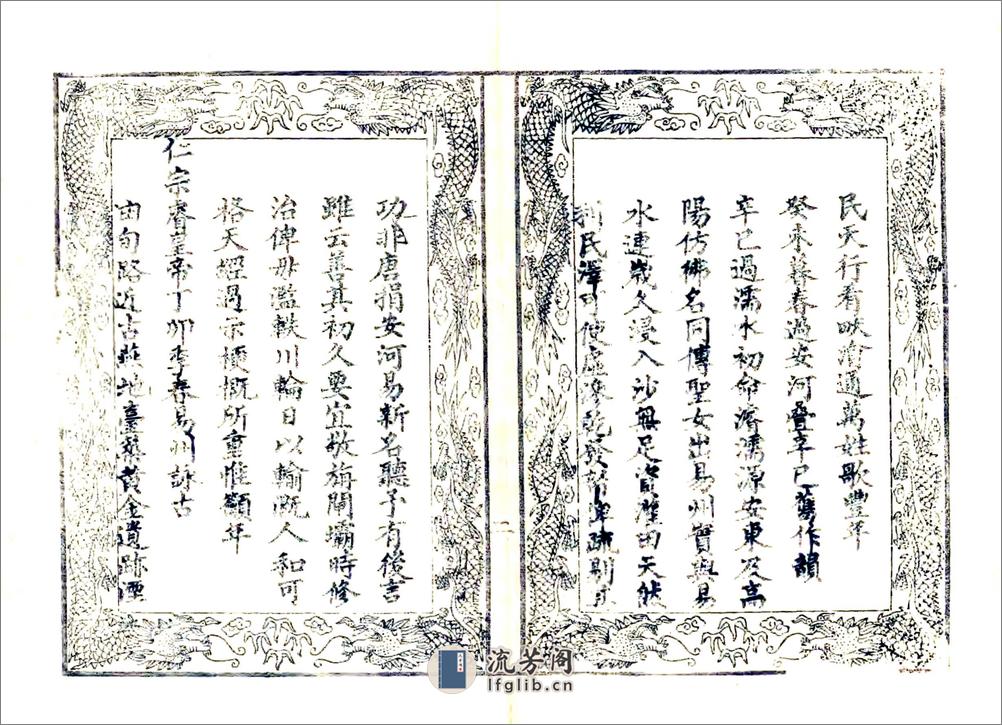 民天行看畎澮通萬姓歌豐年
癸未暮春過安河疊辛巳舊作韻
辛巳過濡水初命濬濡源安東及高
陽仿佛名同博聖女出易州實與易
水連歲久浸入沙無足資灌田天然
民澤可使虛疏別
功非唐捐安河易新名聽予有後言
雖云善其初久要宜敬旃閘壩時修
治俾毋濫軼川輪日以輸溉人和可
格天經過宗梗概所重惟顲年
仁宗睿皇帝丁卯季春易州詠古
由旬路近古燕地臺築黃金遺跡湮
流芳阁
lfglib.cn